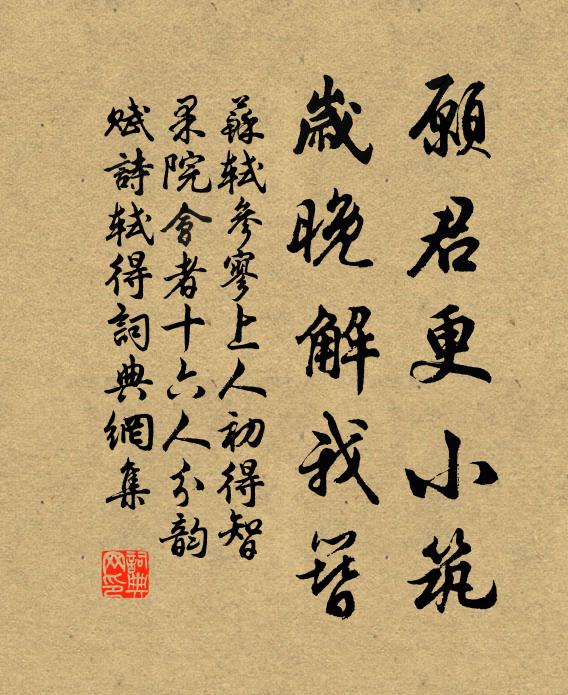 願君更小筑
歲晚解我簪
蘇軾參寥上人初得智
果院會者十六人分韵
賦詩軾得詞典網集
詞典網印